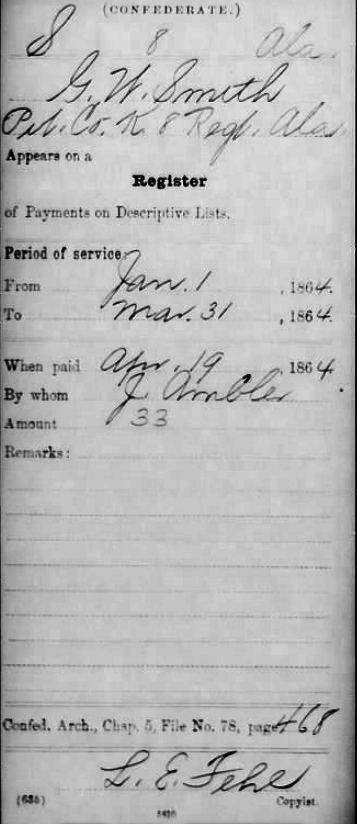 (CONFEDERATE.)
S 8 Ala.
G. W. Smith
Pvt. Co. K. 8 Regt. Ala.
Appears on a
Register
of Payments on Descriptive Lists.
Period of service:
From Jan. 1, 1864.
To Mar. 31, 1864.
When paid Apr. 19, 1864
By whom J Ambler
Amount 33
Remarks:
Confed. Arch., Chap. 5, File No. 78, page 468
L. E. Fehl
(635) Copyist.